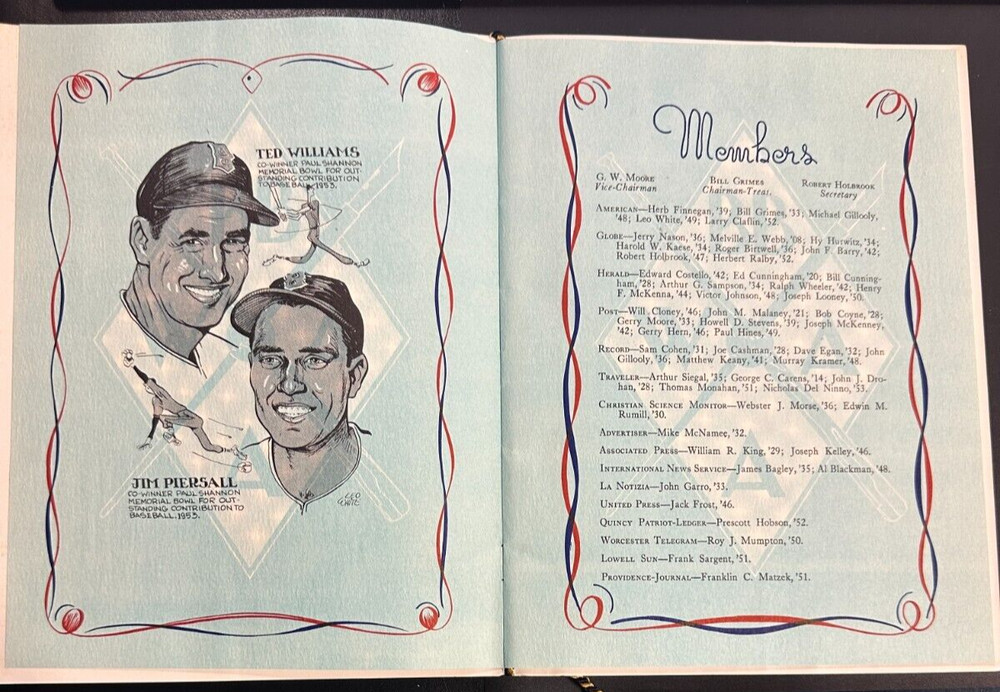 B
TED WILLIAMS
CO-WINNER PAUL SHANNON
MEMORIAL BOWL FOR OUT-
STANDING CONTRIBUTION
TO BASEBALL, 1953.
B
JIM PIERSALL
CO-WINNER PAUL SHANNON
MEMORIAL BOWL FOR OUT-
STANDING CONTRIBUTION TO
BASEBALL, 1953.
LEO
WHITE
Members
G. W. Moore
Vice-Chairman
Bill Grimes
Chairman-Treas.
Robert Holbrook
Secretary
American—Herb Finnegan, '39; Bill Grimes, '33; Michael Gillooly,
'48; Leo White, '49; Larry Claflin, '52.
Globe—Jerry Nason, '36; Melville E. Webb, '08; Hy Hurwitz, '34;
Harold W. Kaese, '34; Roger Birtwell, '36; John F. Barry, '42;
Robert Holbrook, '47; Herbert Ralby, '52.
Herald—Edward Costello, '42; Ed Cunningham, '20; Bill Cunning-
ham, '28; Arthur G. Sampson, '34; Ralph Wheeler, '42; Henry
F. McKenna, '44; Victor Johnson, '48; Joseph Looney, '50.
Post—Will Cloney, '46; John M. Malaney, '21; Bob Coyne, '28;
Gerry Moore, '33; Howell D. Stevens, '39; Joseph McKenney,
'42; Gerry Hern, '46; Paul Hines, '49.
Record—Sam Cohen, '31; Joe Cashman, '28; Dave Egan, '32; John
Gillooly, '36; Matthew Keany, '41; Murray Kramer, '48.
Traveler—Arthur Siegal, '35; George C. Carens, '14; John J. Dro-
han, '28; Thomas Monahan, '51; Nicholas Del Ninno, '53.
Christian Science Monitor—Webster J. Morse, '36; Edwin M.
Rumill, '30.
Advertiser—Mike McNamee, '32.
Associated Press—William R. King, '29; Joseph Kelley, '46.
International News Service—James Bagley, '35; Al Blackman, '48.
La Notizia—John Garro, '33.
United Press—Jack Frost, '46.
Quincy Patriot-Ledger—Prescott Hobson, '52.
Worcester Telegram—Roy J. Mumpton, '50.
Lowell Sun—Frank Sargent, '51.
Providence-Journal—Franklin C. Matzek, '51.